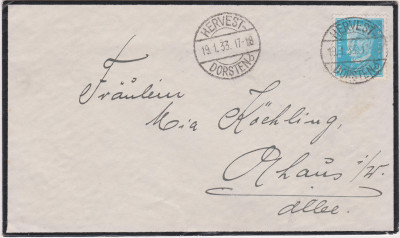 HERVEST-
19.1.33.17-18
DORSTEN
HERVEST-
DORSTEN
Fräulein
Mia Köchling,
Ahaus i/W.
Allee.